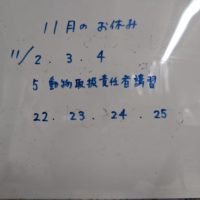 11月のお休み
11/2.3.4
5 動物取扱責任者講習
22.23.24.25